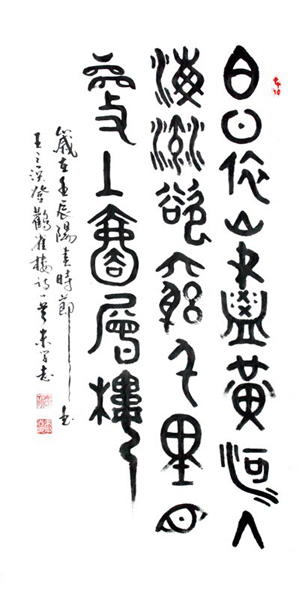 白日依山盡黄河入
海流欲窮千里目
更上壹層樓
歲在壬辰陽春時節書
王之渙登鸛雀樓詩一首